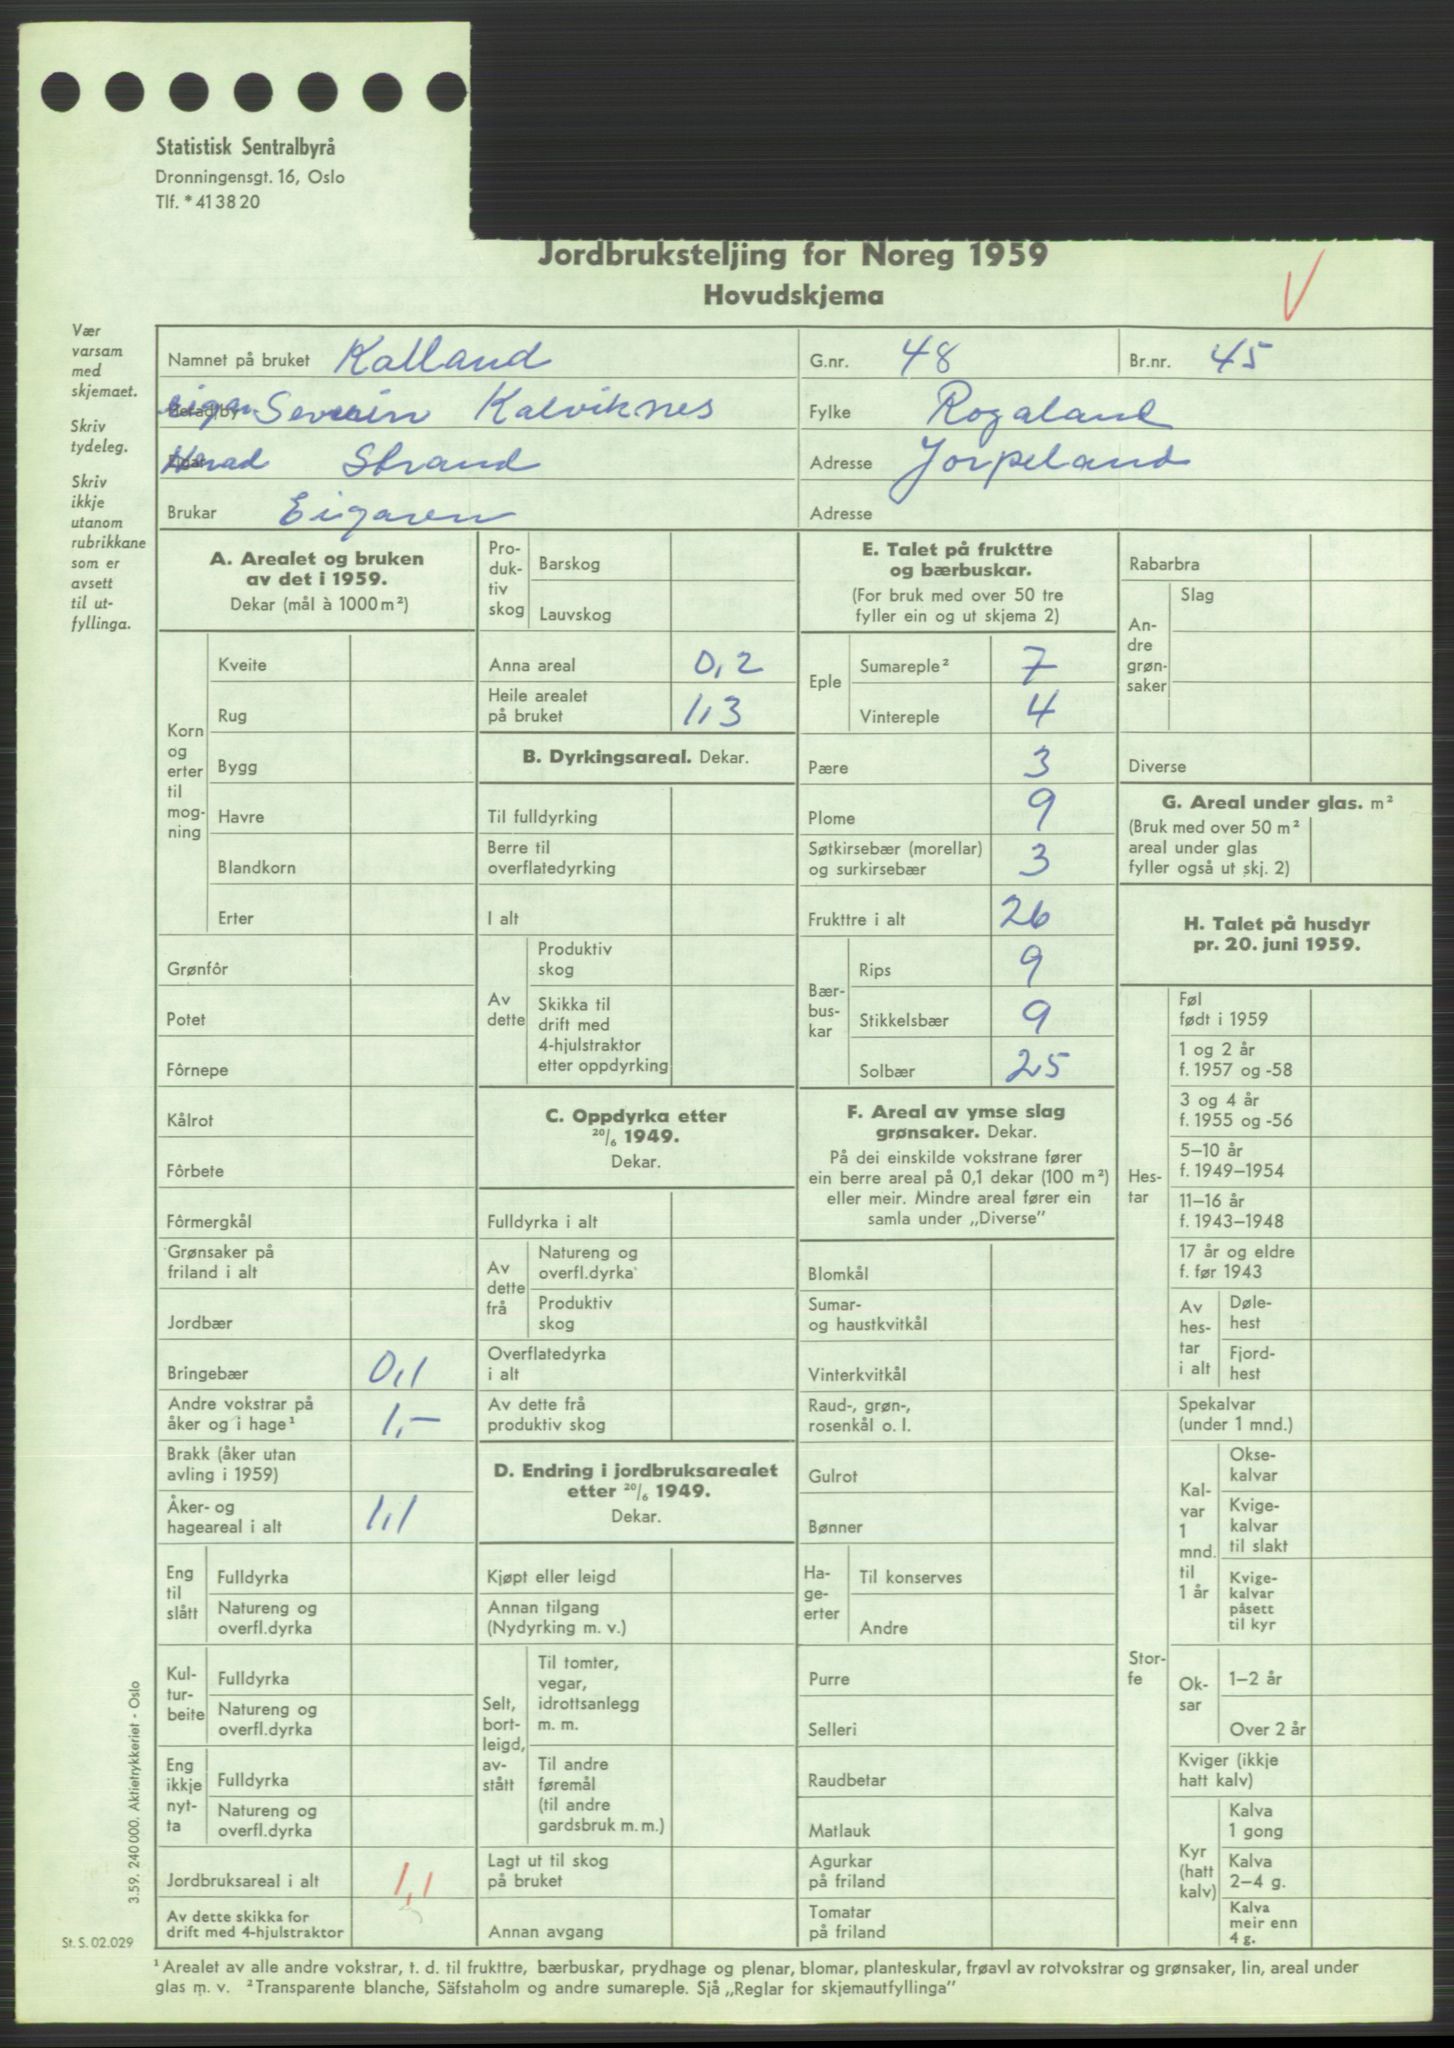 Statistisk Sentralbyrå
Dronningensgt. 16, Oslo
Tlf. * 41 38 20
Jordbruksteljing for Noreg 1959
Hovudskjema
Vær
varsam
med
skjemaet.
Skriv
tydeleg.
Skriv
ikkje
utanom
rubrikkane
som er
avsett
til ut-
fyllinga.
Namnet på bruket Kalland G.nr. 48 Br.nr. 45
Eigar Severin Kalviknes Fylke Rogaland
Herad Strand Adresse Jørpeland
Brukar Eigaren Adresse
A. Arealet og bruken
av det i 1959.
Dekar (mål à 1000 m²)
Korn
og
erter
til
mog-
ning
Kveite
Rug
Bygg
Havre
Blandkorn
Erter
Grønfôr
Potet
Fôrnepe
Kålrot
Fôrbete
Fôrmergkål
Grønsaker på
friland i alt
Jordbær
Bringebær 0,1
Andre vokstrar på
åker og i hage¹ 1,-
Brakk (åker utan
avling i 1959)
Åker- og
hageareal i alt 1,1
Eng
til
slått
Fulldyrka
Natureng og
overfl.dyrka
Kul-
tur-
beite
Fulldyrka
Natureng og
overfl.dyrka
Eng
ikkje
nyt-
ta
Fulldyrka
Natureng og
overfl.dyrka
Jordbruksareal i alt 1,1
Av dette skikka for
drift med 4-hjulstraktor
Pro-
duk-
tiv
skog
Barskog
Lauvskog
Anna areal 0,2
Heile arealet
på bruket 1,3
B. Dyrkingsareal. Dekar.
Til fulldyrking
Berre til
overflatedyrking
I alt
Av
dette
Produktiv
skog
Skikka til
drift med
4-hjulstraktor
etter oppdyrking
C. Oppdyrka etter
20/6 1949.
Dekar.
Fulldyrka i alt
Av
dette
frå
Natureng og
overfl.dyrka
Produktiv
skog
Overflatedyrka
i alt
Av dette frå
produktiv skog
D. Endring i jordbruksarealet
etter 20/6 1949.
Dekar.
Kjøpt eller leigd
Annan tilgang
(Nydyrking m. v.)
Selt,
bort-
leigd,
av-
stått
Til tomter,
vegar,
idrottsanlegg
m. m.
Til andre
føremål
(til andre
gardsbruk m. m.)
Lagt ut til skog
på bruket
Annan avgang
E. Talet på frukttre
og bærbuskar.
(For bruk med over 50 tre
fyller ein og ut skjema 2)
Eple
Sumareple² 7
Vintereple 4
Pære 3
Plome 9
Søtkirsebær (morellar)
og surkirsebær 3
Frukttre i alt 26
Bær-
bus-
kar
Rips 9
Stikkelsbær 9
Solbær 25
F. Areal av ymse slag
grønsaker. Dekar.
På dei einskilde vokstrane fører
ein berre areal på 0,1 dekar (100 m²)
eller meir. Mindre areal fører ein
samla under „Diverse”
Blomkål
Sumar-
og haustkvitkål
Vinterkvitkål
Raud-, grøn-,
rosenkål o. l.
Gulrot
Bønner
Ha-
ge-
erter
Til konserves
Andre
Purre
Selleri
Raudbetar
Matlauk
Agurkar
på friland
Tomatar
på friland
Rabarbra
An-
dre
grøn-
saker
Slag
Diverse
G. Areal under glas. m²
(Bruk med over 50 m²
areal under glas
fyller også ut skj. 2)
H. Talet på husdyr
pr. 20. juni 1959.
Hes-
tar
Føl
født i 1959
1 og 2 år
f. 1957 og -58
3 og 4 år
f. 1955 og -56
5–10 år
f. 1949–1954
11–16 år
f. 1943–1948
17 år og eldre
f. før 1943
Av
hes-
tar
i alt
Døle-
hest
Fjord-
hest
Stor-
fe
Spekalvar
(under 1 mnd.)
Kal-
var
1
mnd.
til
1 år
Okse-
kalvar
Kvige-
kalvar
til slakt
Kvige-
kalvar
påsett
til kyr
Ok-
sar
1–2 år
Over 2 år
Kviger (ikkje
hatt kalv)
Kyr
(hatt
kalv)
Kalva
1 gong
Kalva
2–4 g.
Kalva
meir enn
4 g.
3.59. 240 000. Aktietrykkeriet - Oslo
St. S. 02.029
¹ Arealet av alle andre vokstrar, t. d. til frukttre, bærbuskar, prydhage og plenar, blomar, planteskular, frøavl av rotvokstrar og grønsaker, lin, areal under
glas m. v. ² Transparente blanche, Säfstaholm og andre sumareple. Sjå „Reglar for skjemautfyllinga”